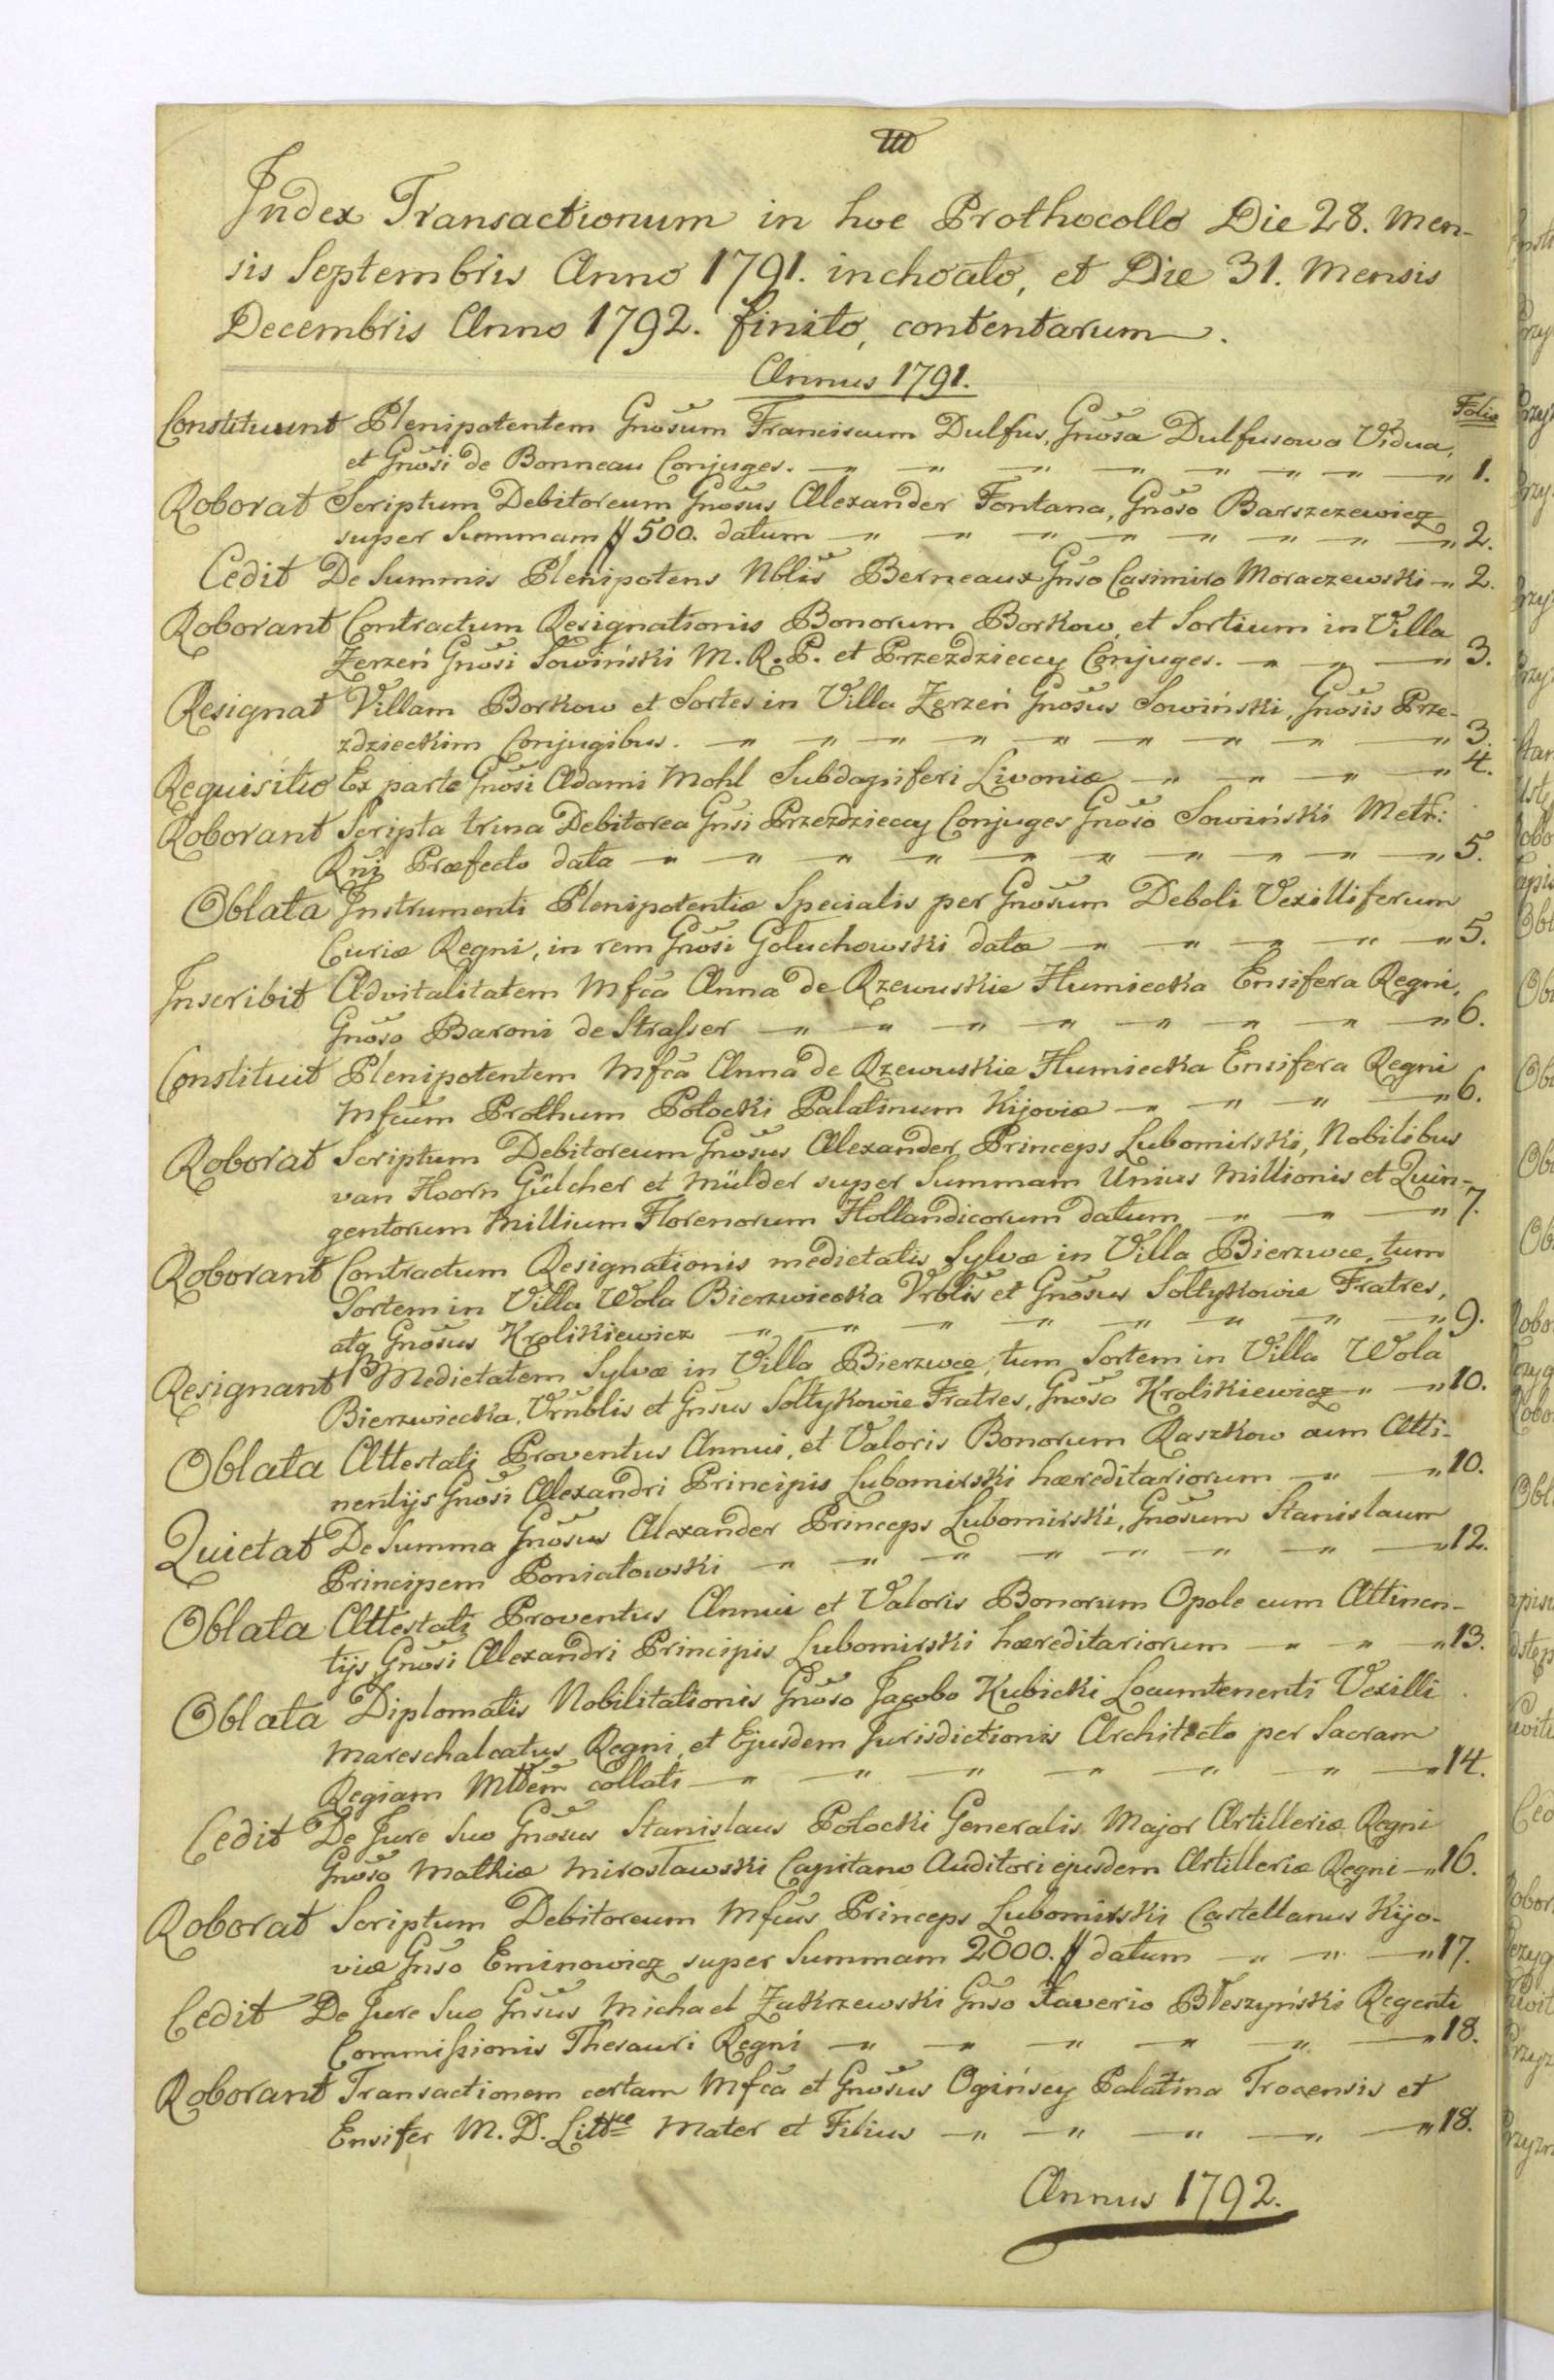 III
Index Transactionum in hoc Prothocollo Die 28. Men-
sis Septembris Anno 1791. inchoato, et Die 31. Mensis
Decembris Anno 1792. finito, contentarum.
Annus 1791.
Folia
Constituunt Plenipotentem Gnõsum Franciscum Dulfus, Gnõsa Dulfusowa Vidua,
et Gnõsi de Bonneau Conjuges. 1.
Roborat Scriptum Debitoreum Gnõsus Alexander Fontana, Gnõso Barszczewicz
super Summam # 500. datum 2.
Cedit De Summis Plenipotens Nblis Berneaux Gnšo Casimiro Moraczewski 2.
Roborant Contractum Resignationis Bonorum Borkow, et Sortium in Villa
Zerzeń Gnõsi Sowiński M.R.P. et Przezdzieccy Conjuges. 3.
Resignat Villam Borkow et Sortes in Villa Zerzeń Gnõsus Sowiński, Gnõsis Prze-
zdzieckim Conjugibus. 3.
Requisitio Ex parte Gnõsi Adami Mohl Subdapiferi Livoniæ 4.
Roborant Scripta trina Debitorea Gnši Przezdzieccy Conjuges Gnõso Sowiński Metr:
Rnĩ Præfecto data 5.
Oblata Instrumenti Plenipotentiæ Specialis per Gnõsum Deboli Vexilliferum
Curiæ Regni, in rem Gnõsi Goluchowski datæ 5.
Inscribit Advitalitatem Mfcã Anna de Rzewuskie Humiecka Ensifera Regni,
Gnõso Baroni de Strasser 6.
Constituit Plenipotentem Mfcã Anna de Rzewuskie Humiecka Ensifera Regni
Mfcũm Prothum Potocki Palatinum Kijoviæ 6.
Roborat Scriptum Debitoreum Gnõsus Alexander Princeps Lubomirski, Nobilibus
van Hoorn Gülcher et Mülder super Summam Unius Millionis et Quin-
gentorum Millium Florenorum Hollandicorum datum 7.
Roborant Contractum Resignationis medietatis Sylvæ in Villa Bierzwce, tum
Sortem in Villa Wola Bierzwiecka Vrblis et Gnõsus Soltykowie Fratres,
atq Gnõsus Krolikiewicz 9.
Resignant Medietatem Sylvæ in Villa Bierzwce, tum Sortem in Villa Wola
Bierzwiecka, Vrũblis et Gnšus Soltykowie Fratres, Gnõso Krolikiewicz 10.
Oblata Attestati Proventus Annui, et Valoris Bonorum Raszkow cum Atti-
nentijs Gnõsi Alexandri Principis Lubomirski hæreditariorum 10.
Quietat De Summa Gnõsus Alexander Princeps Lubomirski, Gnõsum Stanislaum
Principem Poniatowski 12.
Oblata Attestati Proventus Annui et Valoris Bonorum Opole cum Attinen-
tijs Gnõsi Alexandri Principis Lubomirski hæreditariorum 13.
Oblata Diplomatis Nobilitationis Gnõso Jacobo Kubicki Locumtenenti Vexilli
Mareschalcatus Regni, et Ejusdem Jurisdictionis Architecto per Sacram
Regiam Mttẽm collati 14.
Cedit De Jure Suo Gnõsus Stanislaus Potocki Generalis Major Artilleriæ Regni
Gnõso Mathiæ Mirosławski Capitano Auditori ejusdem Artilleriæ Regni 16.
Roborat Scriptum Debitoreum Mfcus Princeps Lubomirski Castellanus Kijo-
viæ Gnšo Eminowicz super Summam 2000. # datum 17.
Cedit De Jure Suo Gnšus Michael Zakrzewski Gnšo Xaverio Błeszyński Regenti
Commissionis Thesauri Regni 18.
Roborant Transactionem certam Mfcã et Gnõsus Ogińscy Palatina Trocensis et
Ensifer M. D. Littæ Mater et Filius 18.
Annus 1792.